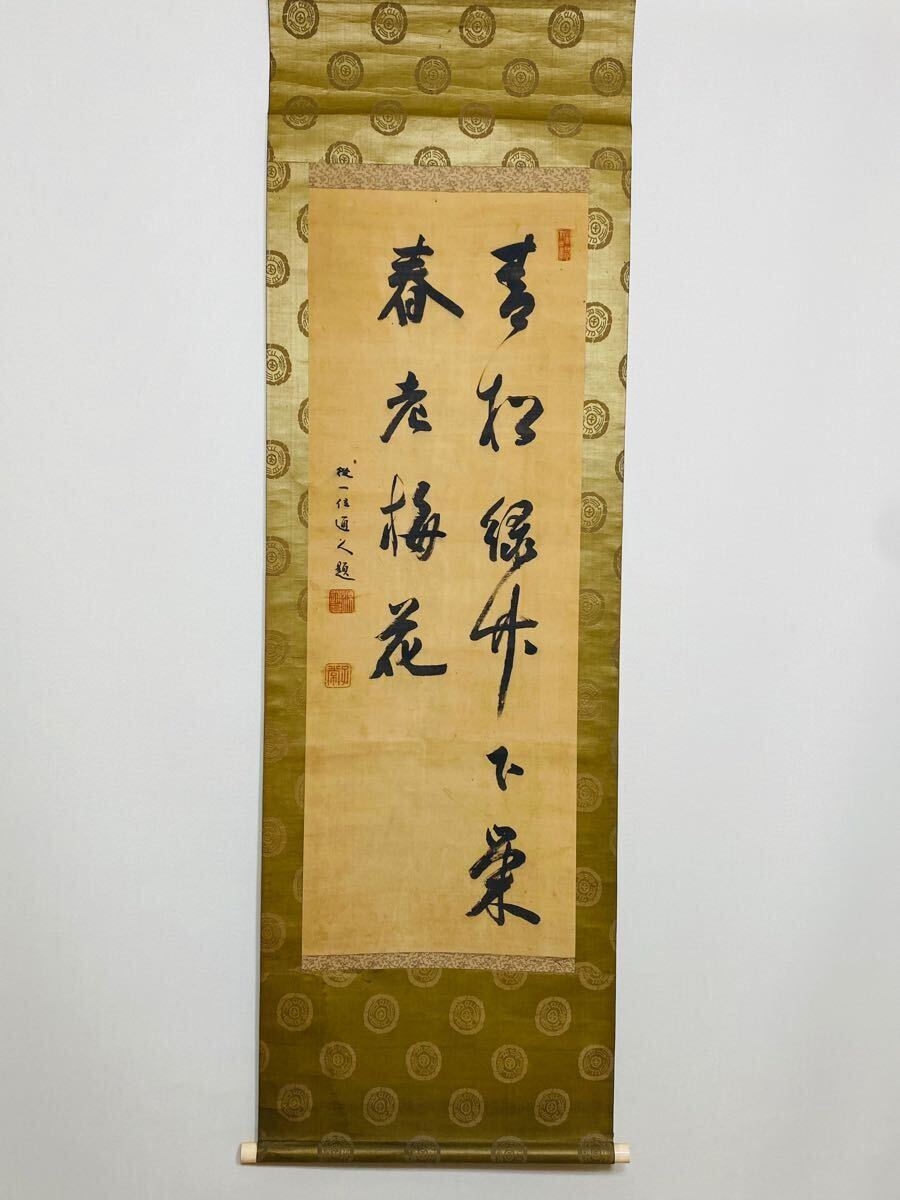 青松緑竹下
春老梅花
從一位通久題